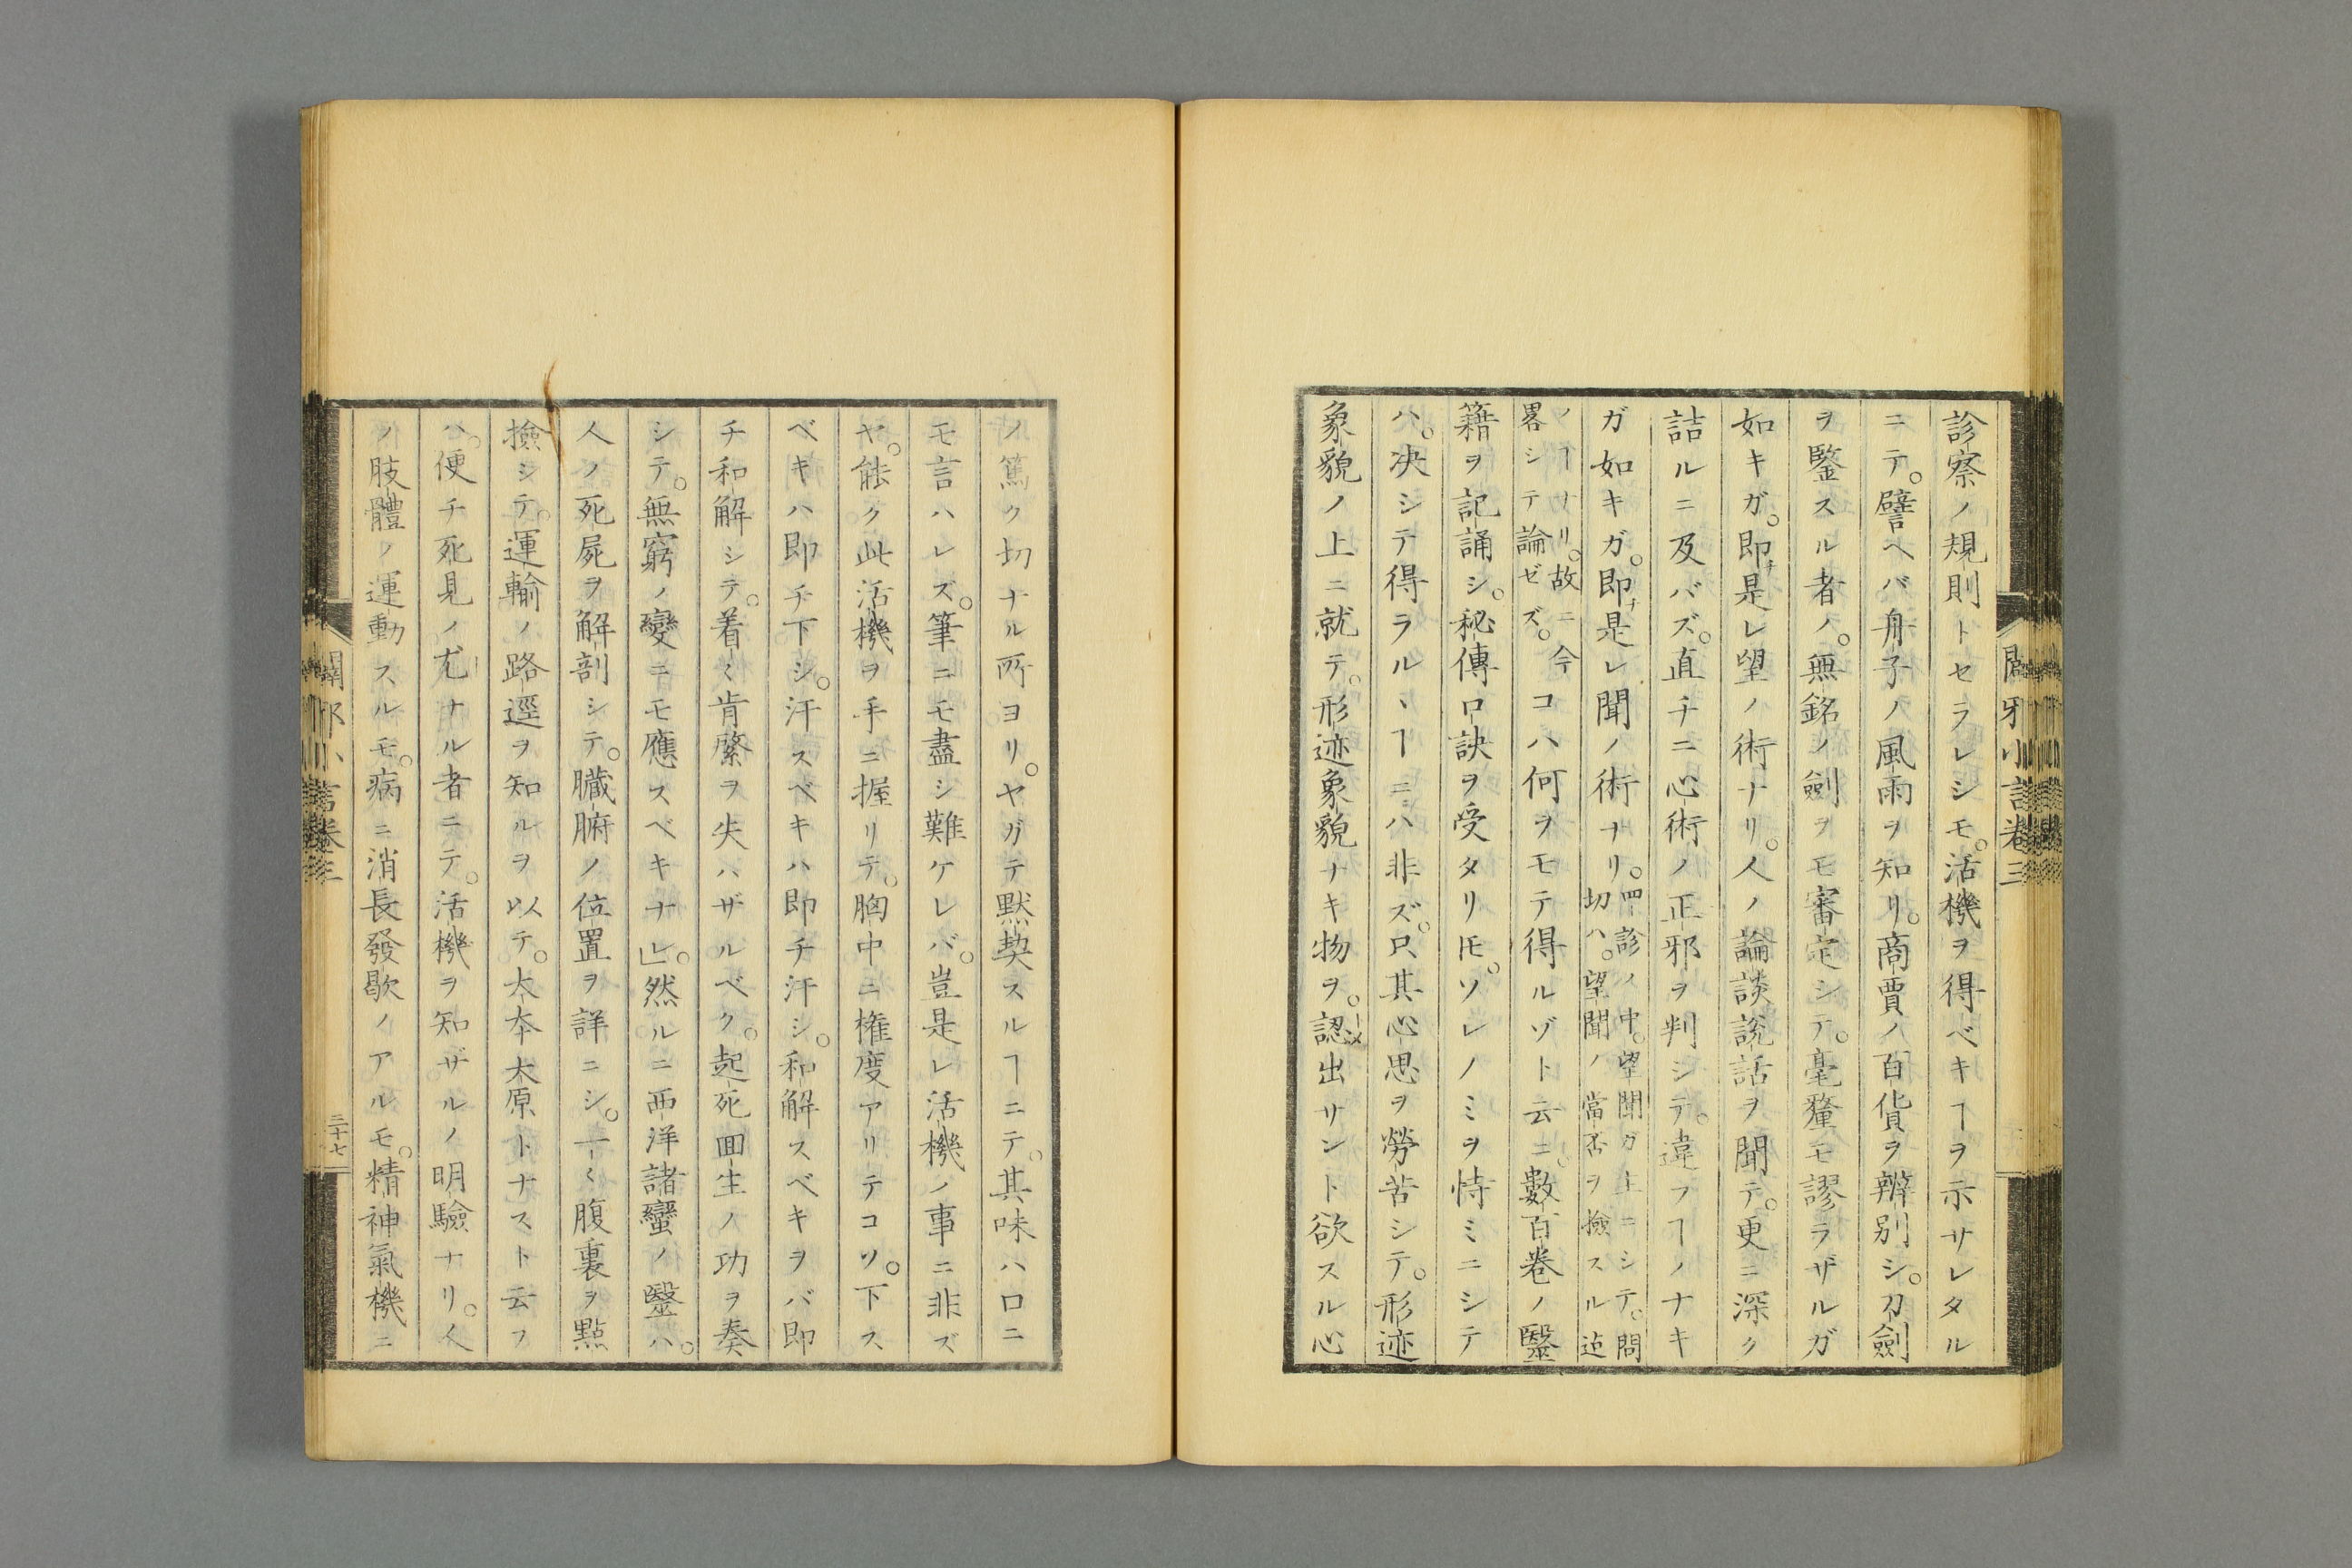 診察ノ規則トセラレシモ。活機ヲ得ベキヿヲ示サレタル
ニテ。譬ヘバ舟子ノ風雨ヲ知リ。商賈ノ百貨ヲ辨別シ。刀劍
ヲ鑒スル者ノ。無銘ノ劍ヲモ審定シテ。毫釐モ謬ラザルガ
如キガ。即チ是レ望ノ術ナリ。人ノ論談説話ヲ聞テ。更ニ深ク
詰ルニ及バズ。直チニ心術ノ正邪ヲ判シテ。違フヿノナキ
ガ如キガ。即チ是レ聞ノ術ナリ。四診ノ中。望聞ガ主ニシテ。問
切ハ。望聞ノ當否ヲ撿スル迠
ノヿナリ。故ニ今
畧シテ論ゼズ。コハ何ヲモテ得ルゾト云ニ。數百卷ノ醫
籍ヲ記誦シ。秘傳口訣ヲ受タリ𪜈。ソレノミヲ恃ミニシテ
ハ。决シテ得ラルヽヿニハ非ズ。只其心思ヲ勞苦シテ。形迹
象貌ノ上ニ就テ。形迹象貌ナキ物ヲ。認メ出サント欲スル心
闢邪小言卷三
ノ篤ク切ナル所ヨリ。ヤガテ黙契スルヿニテ。其味ハ口ニ
モ言ハレズ。筆ニモ盡シ難ケレバ。豈是レ活機ノ事ニ非ズ
ヤ。能ク此活機ヲ手ニ握リテ。胸中ニ権度アリテコソ。下ス
ベキハ即チ下シ。汗スベキハ即チ汗シ。和解スベキヲバ即
チ和解シテ。着〻肯綮ヲ失ハザルベク。起死回生ノ功ヲ奏
シテ。無窮ノ變ニモ應スベキナレ」。然ルニ西洋諸蠻ノ醫ハ。
人ノ死屍ヲ解剖シテ。臟腑ノ位置ヲ詳ニシ。一〻腹裏ヲ點
撿シテ。運輸ノ路逕ヲ知ルヲ以テ。大本大原トナスト云フ
ハ。便チ死見ノ尤ナル者ニテ。活機ヲ知ザルノ明驗ナリ。人
ノ肢體ノ運動スルモ。病ニ消長發歇ノアルモ。精神氣機ニ
闢邪小言卷三
二十七